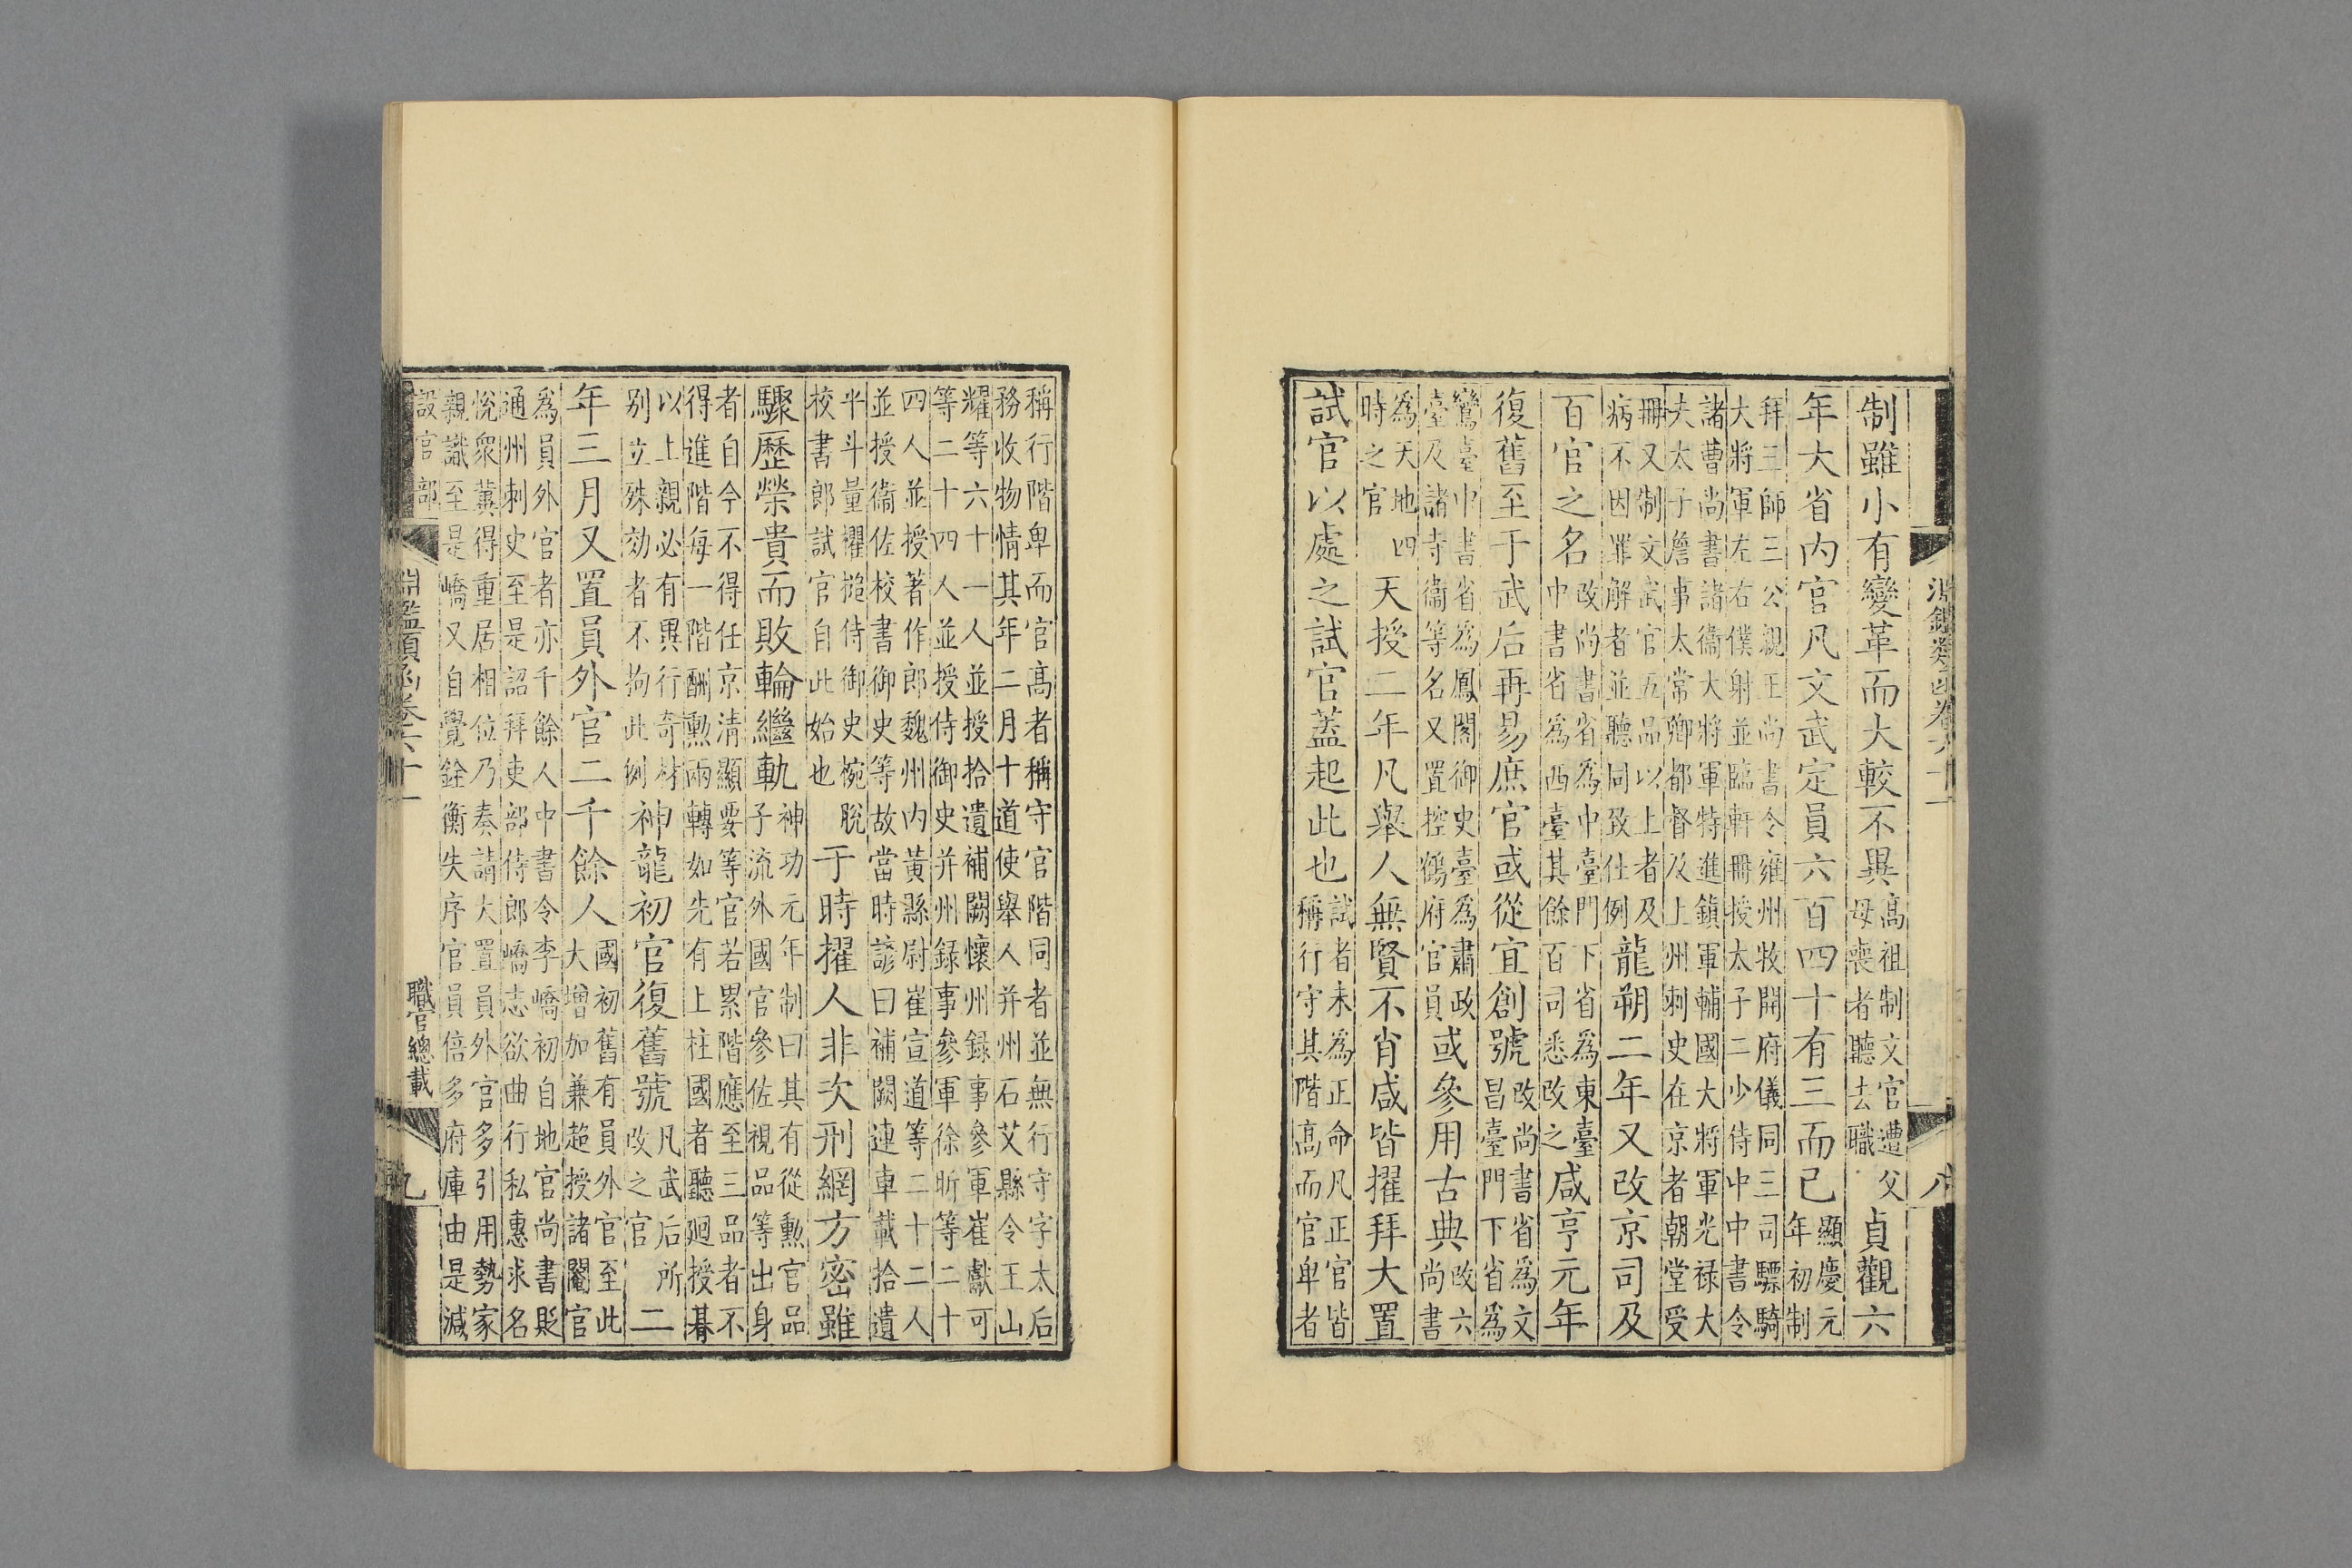 淵鑑類函卷六十一 八
制雖小有變革而大較不異高祖制文官遭父母喪者聽去職貞觀六
年大省內官凡文武定員六百四十有三而已顯慶元年初制
拜三師三公親王尚書令雍州牧開府儀同三司驃騎
大將軍左右僕射並臨軒冊授太子二少侍中中書令
諸曹尚書諸衞大將軍特進鎮軍輔國大將軍光祿大
夫太子詹事太常卿都督及上州刺史在京者朝堂受
冊又制文武官五品以上者及病不因罪解者並聽同致仕例龍朔二年又改京司及
百官之名改尚書省為中臺門下省為東臺中書省為西臺其餘百司悉改之咸亨元年
復舊至于武后再易庶官或從宜創號改尚書省為文昌臺門下省為
鸞臺中書省為鳳閣御史臺為肅政臺及諸寺衞等名又置控鶴府官員或參用古典改六尚書
為天地四時之官天授二年凡舉人無賢不肖咸皆擢拜大置
試官以處之試官蓋起此也試者未為正命凡正官皆稱行守其階高而官卑者
稱行階卑而官高者稱守官階同者並無行守字太后
務收物情其年二月十道使舉人并州石艾縣令王山
耀等六十一人並授拾遺補闕懷州錄事參軍崔獻可
等二十四人並授侍御史并州錄事參軍徐昕等二十
四人並授著作郎魏州內黃縣尉崔宣道等二十二人
並授衞佐校書御史等故當時諺曰補闕連車載拾遺
平斗量欋槌侍御史椀脫校書郎試官自此始也于時擢人非次刑網方密雖
驟歷榮貴而敗輪繼軌神功元年制曰其有從勲官品子流外國官參佐視品等出身
者自今不得任京清顯要等官若累階應至三品者不
得進階每一階酬勲兩轉如先有上柱國者聽迴授朞
以上親必有異行奇材别立殊効者不拘此例神龍初官復舊號凡武后所改之官二
年三月又置員外官二千餘人國初舊有員外官至此大增加兼超授諸閹官
為員外官者亦千餘人中書令李嶠初自地官尚書貶
通州刺史至是詔拜吏部侍郎嶠志欲曲行私惠求名
悅衆冀得重居相位乃奏請大置員外官多引用勢家
親識至是嶠又自覺銓衡失序官員倍多府庫由是減
設官部
淵鑑類函卷六十一 職官總載 九